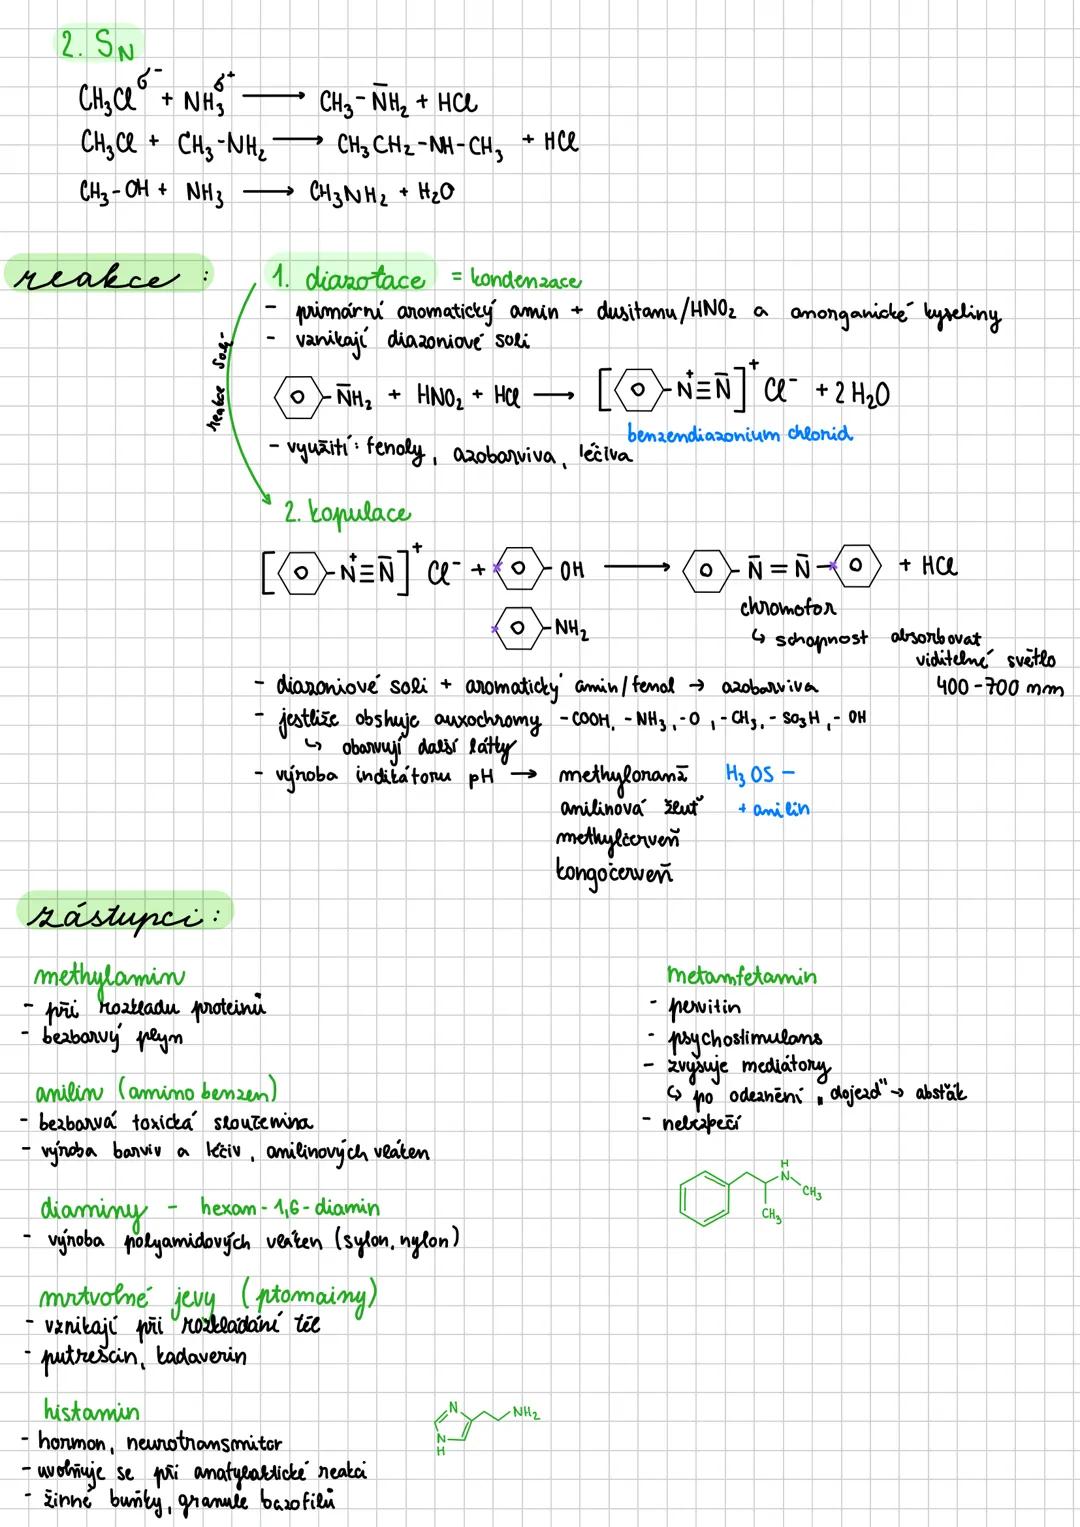 2. S_N
CH₃Cl^σ- + NH₃^σ+ → CH₃-NH₂ + HCl
CH₃Cl + CH₃-NH₂ → CH₃CH₂-NH-CH₃ + HCl
CH₃-OH + NH₃ → CH₃NH₂ + H₂O
reakce :
1. diazotace = kondenzace
- primární aromatický amin + dusitanu/HNO₂ a anorganické kyseliny
- vznikají diazoniové soli
reakce solí
-NH₂ + HNO₂ + HCl → [ -N⁺≡N ]⁺ Cl⁻ + 2 H₂O
benzendiazonium chlorid
- využití: fenoly, azobarviva, léčiva
2. kopulace
[ -N⁺≡N ]⁺ Cl⁻ + -OH → -N=N- + HCl
-NH₂
chromofor
↳ schopnost absorbovat
viditelné světlo
400-700 nm
- diazoniové soli + aromatický amin/fenol → azobarviva
- jestliže obshuje auxochromy -COOH, -NH₃, -O, -CH₃, -SO₃H, -OH
↳ obarvují další látky
- výroba indikátoru pH → methyloranž H₃OS -
anilinová žluť + anilin
methylčerveň
kongočerveň
zástupci:
methylamin
- při rozkladu proteinů
- bezbarvý plyn
anilin (amino benzen)
- bezbarvá toxická sloučenina
- výroba barviv a léčiv, anilinových vláken
diaminy - hexan-1,6-diamin
- výroba polyamidových vláken (sylon, nylon)
mrtvolné jevy (ptomainy)
- vznikají při rozkládání těl
- putrescin, kadaverin
histamin
- hormon, neurotransmitor
- uvolňuje se při anafylaktické reakci
- žinné buňky, granule bazofilů
N
N
H
NH₂
metamfetamin
- pervitin
- psychostimulans
- zvyšuje mediátory
↳ po odeznění „dojezd" → absťák
- nebezpečí
H
N
CH₃
CH₃